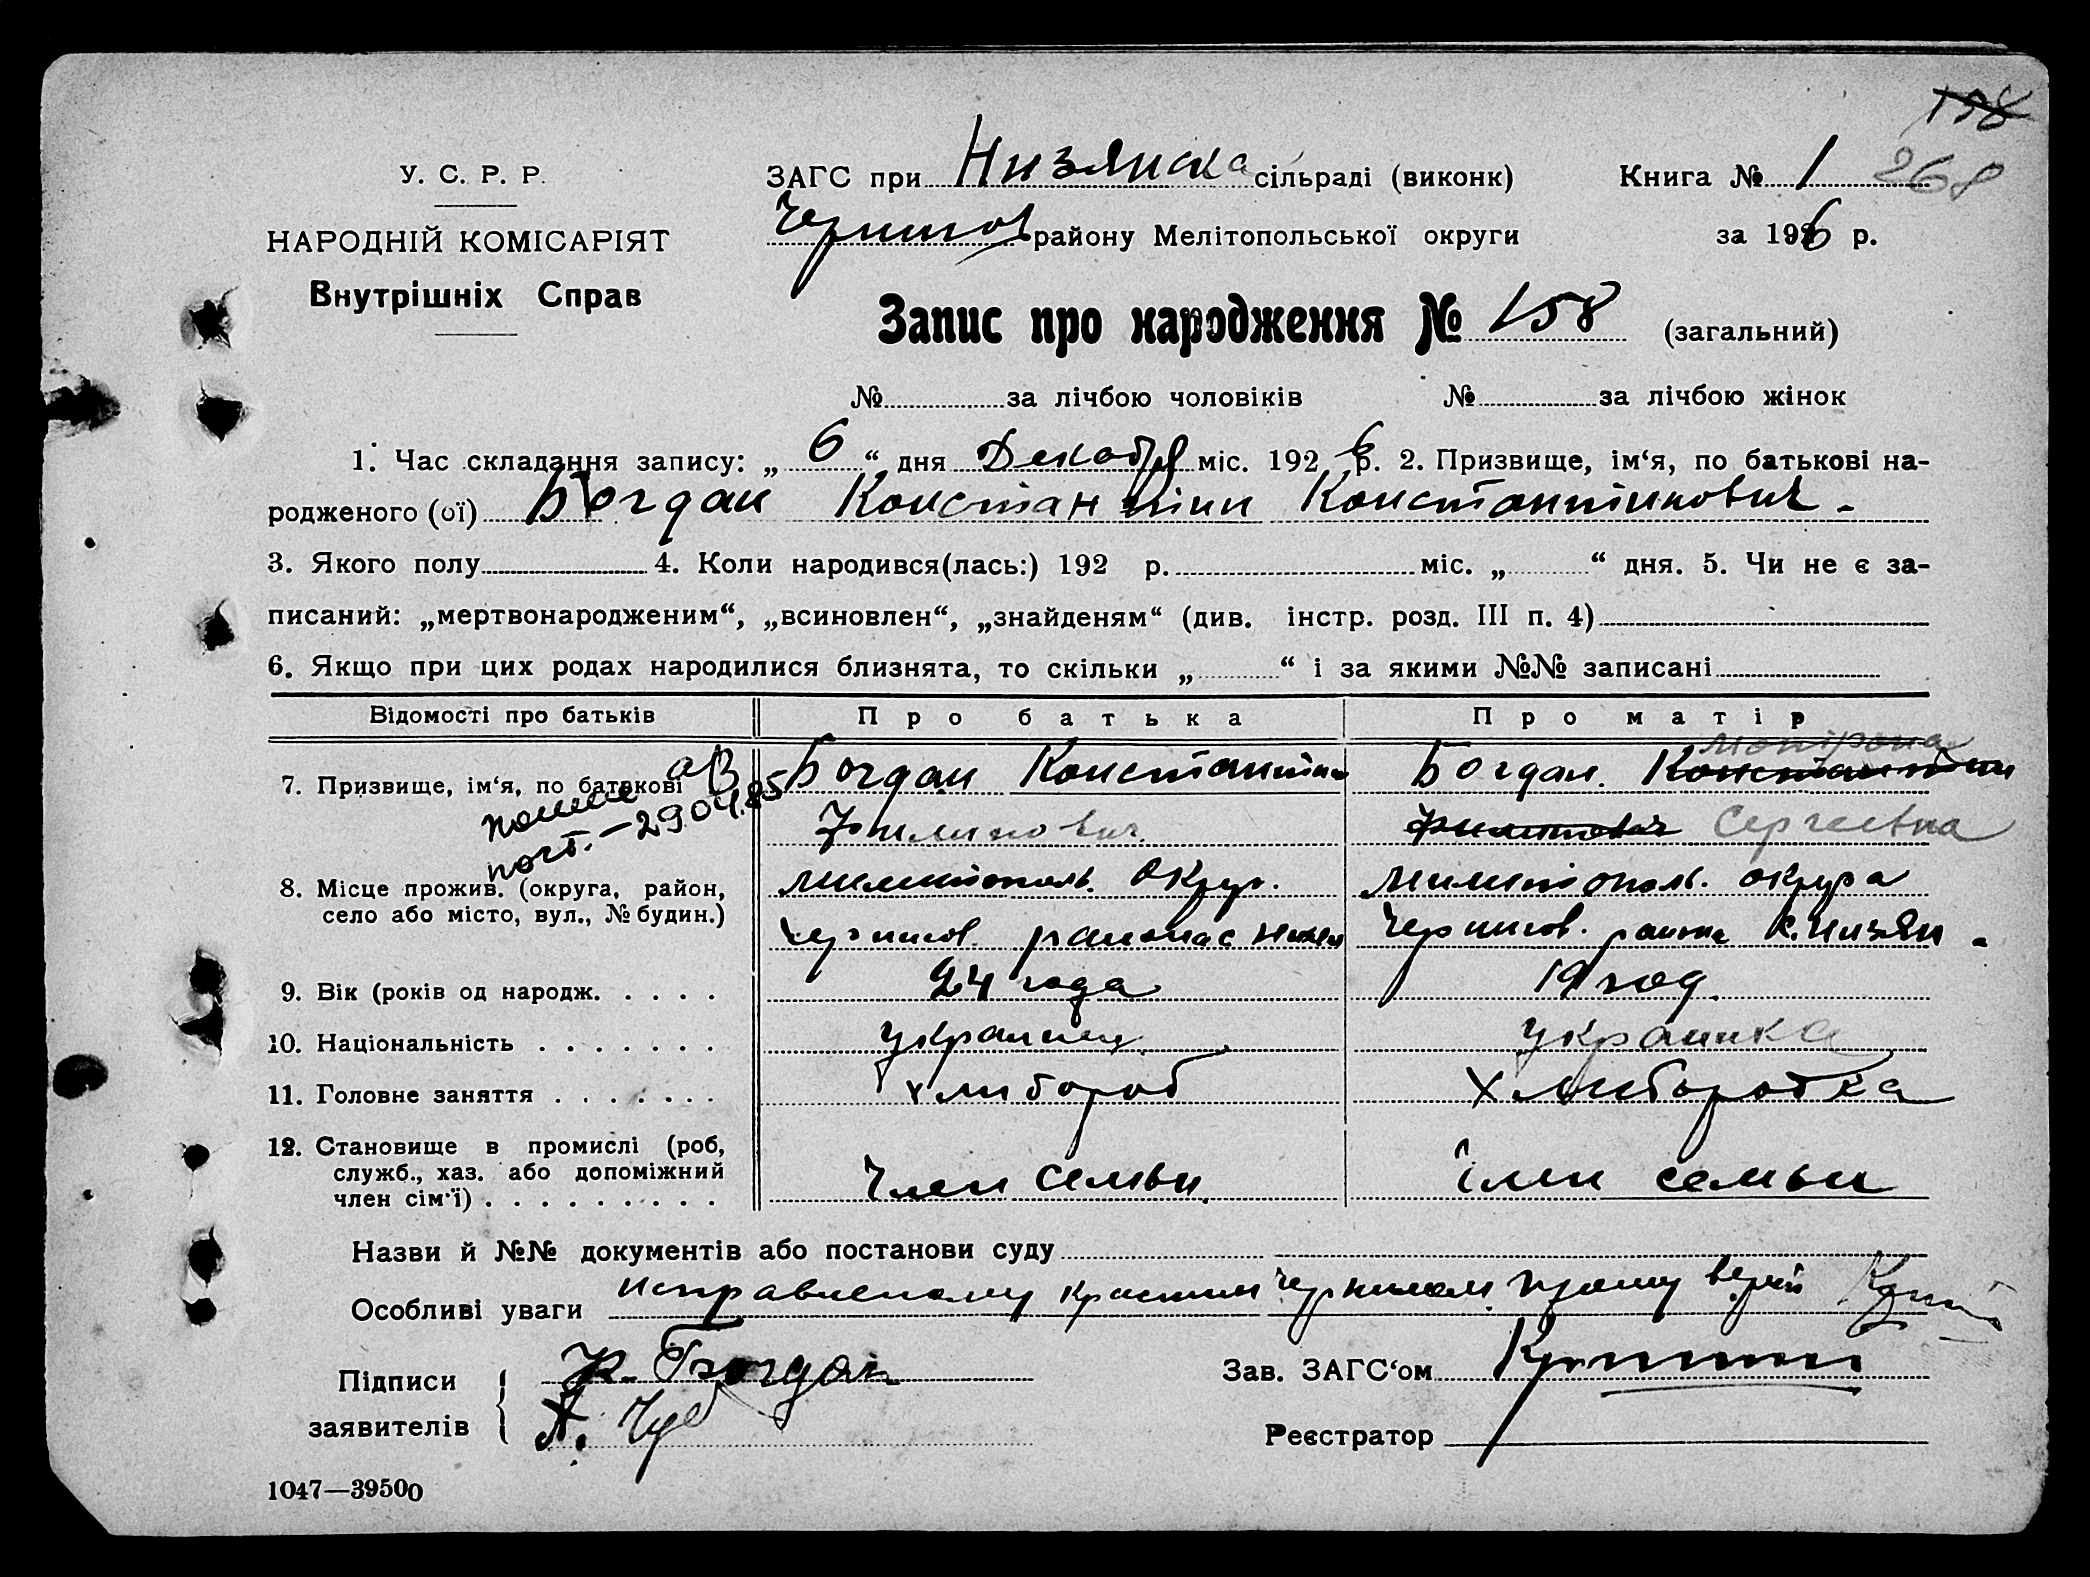 158
У. С. Р. Р.
ЗАГС при Низянска сільраді (виконк) Книга № 1 268
НАРОДНІЙ КОМІСАРІЯТ
Чернигов району Мелітопольської округи за 1926 р.
Внутрішніх Справ
Запис про народження № 158 (загальний)
№ за лічбою чоловіків № за лічбою жінок
1. Час складання запису: „ 6 “ дня Декабря міс. 1926 р. 2. Призвище, ім‘я, по батькові на-
родженого (ої) Богдан Константин Константинович.
3. Якого полу 4. Коли народився(лась:) 192 р. міс. „ “ дня. 5. Чи не є за-
писаний: „мертвонародженим“, „всиновлен“, „знайденям“ (див. інстр. розд. III п. 4)
6. Якщо при цих родах народилися близнята, то скільки „ “ і за якими №№ записані
Відомості про батьків Про батька Про матір
7. Призвище, ім‘я, по батькові Богдан Константин Богдан. Константин
пост. – 29.04.85 Филипович Филиппович Сергеевна
8. Місце прожив. (округа, район, Милитополь. Округ. Милитополь. округа
село або місто, вул., № будин.) Чернигов. района с Низян Чернигов. района с. Низян.
9. Вік (років од народж. . . . . 24 года 19 год.
10. Національність . . . . . . . украинец украинка
11. Головне заняття . . . . . . . хлибороб хлиборобка
12. Становище в промислі (роб,
служб., хаз. або допоміжний
член сім‘ї) . . . . . . . . . Член семьи член семьи
Назви й №№ документів або постанови суду
Особливі уваги исправленому красним чернилом прошу верить
Підписи К. Богдан Зав. ЗАГС‘ом
заявителів А. Чуб Реєстратор
1047—39500